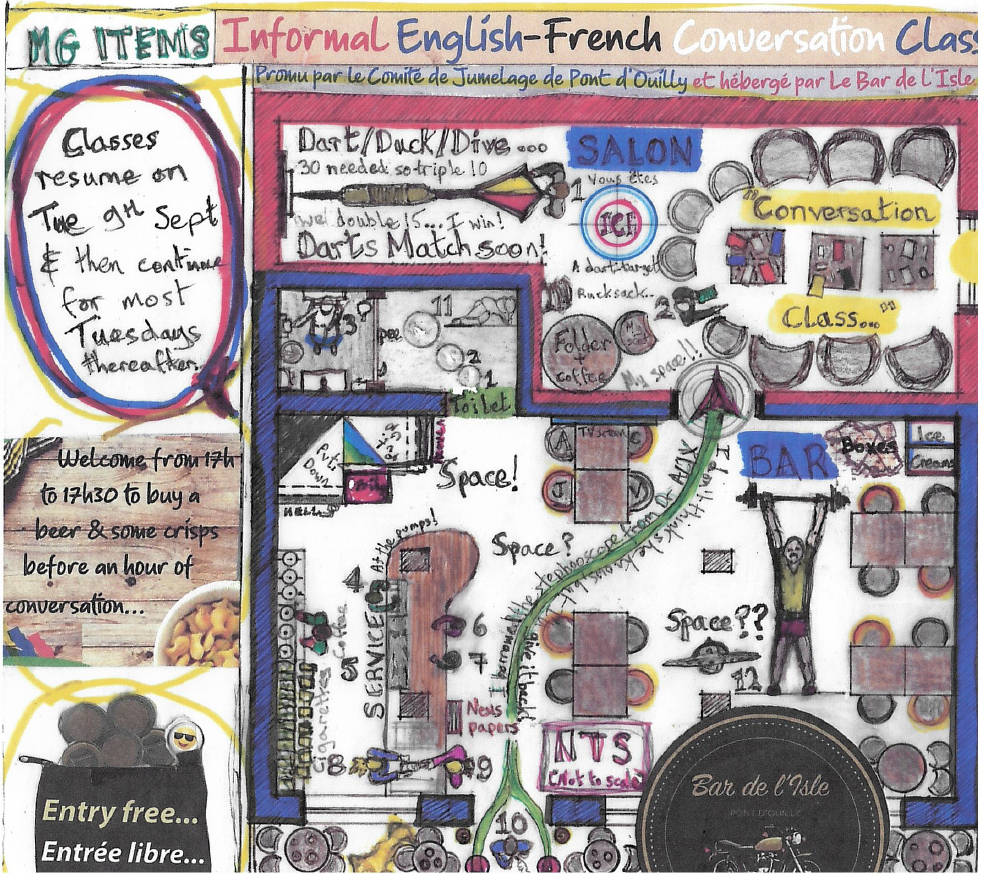 MG ITEMS
Informal English-French Conversation Clas
Promu par le Comité de Jumelage de Pont d'Ouilly et hébergé par Le Bar de L'Isle
Classes
resume on
Tue 9th Sept
& then continue
for most
Tuesdays
thereafter.
Welcome from 17h
to 17h30 to buy a
beer & some crisps
before an hour of
conversation...
Entry free...
Entrée libre...
Dart/Duck/Dive...
30 needed so triple 10
double 15... I win!
Darts Match soon!
SALON
1 Vous êtes
ICI
A dart target
Rucksack..
2
Folder
+
coffee
My space!!
"Conversation
Class..."
3
pee
11
2
1
Toilet
Space!
Space?
Space??
A
TV screen
C
J
V
BAR
Boxes
Ice
Creams
At the pumps!
4
5
SERVICE
Cigarettes
Coffee
6
7
News
papers
8
9
10
12
NTS
(Not to scale)
Bar de l'Isle
PONT D'OUILLY